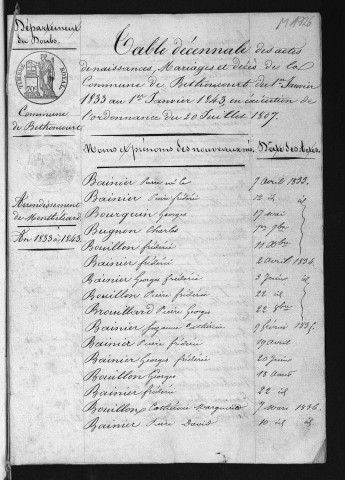 Département
du Doubs.
TIMBRE ROYAL
Commune
de Bethoncourt
Arrondissement
de Montbéliard
An 1833 à 1843
Table décennale des actes
de naissances, Mariages et décès de la
Commune de Bethoncourt du 1er Janvier
1833 au 1er Janvier 1843, en exécution de
l'ordonnance du 20 Juillet 1807.
Noms et prénoms des nouveaux nés. Date des Actes.
Bainier Pierre 7 avril 1833.
Bainier Pierre frédéric 12 id
Bourquin Georges 17 mai
Bugnon Charles
Bouillon frédéric 11 Xbre
Bainier frédéric 2 avril 1834.
Bainier Georges frédéric 3 Juin
Bouillon Pierre frédéric 22 id
Brouillard Pierre Georges 22
Bainier Suzanne Catherine 9 février 1835.
Bainier Pierre frédéric 19 avril
Bainier Georges frédéric 20 Juin
Bouillon Georges 18 Août
Bainier frédéric 22 id
Bouillon Catherine Marguerite 7 Mars 1836.
Bainier Pierre David 10 id